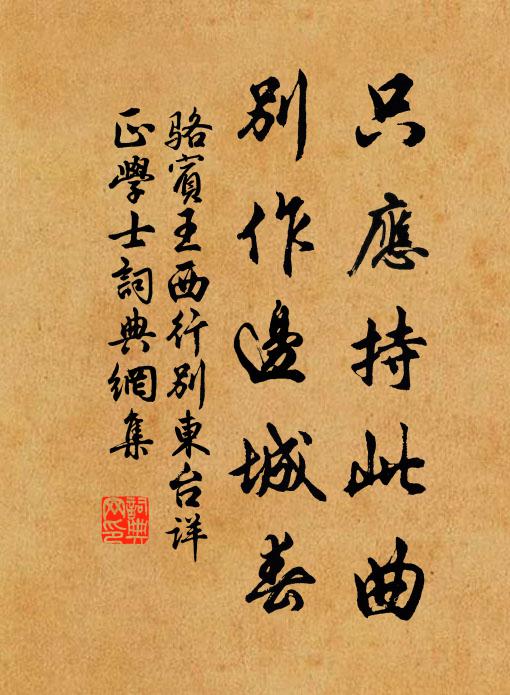 只應持此曲
別作邊城春
駱賓王西行別東台詳
正學士詞典網集
詞典
网印